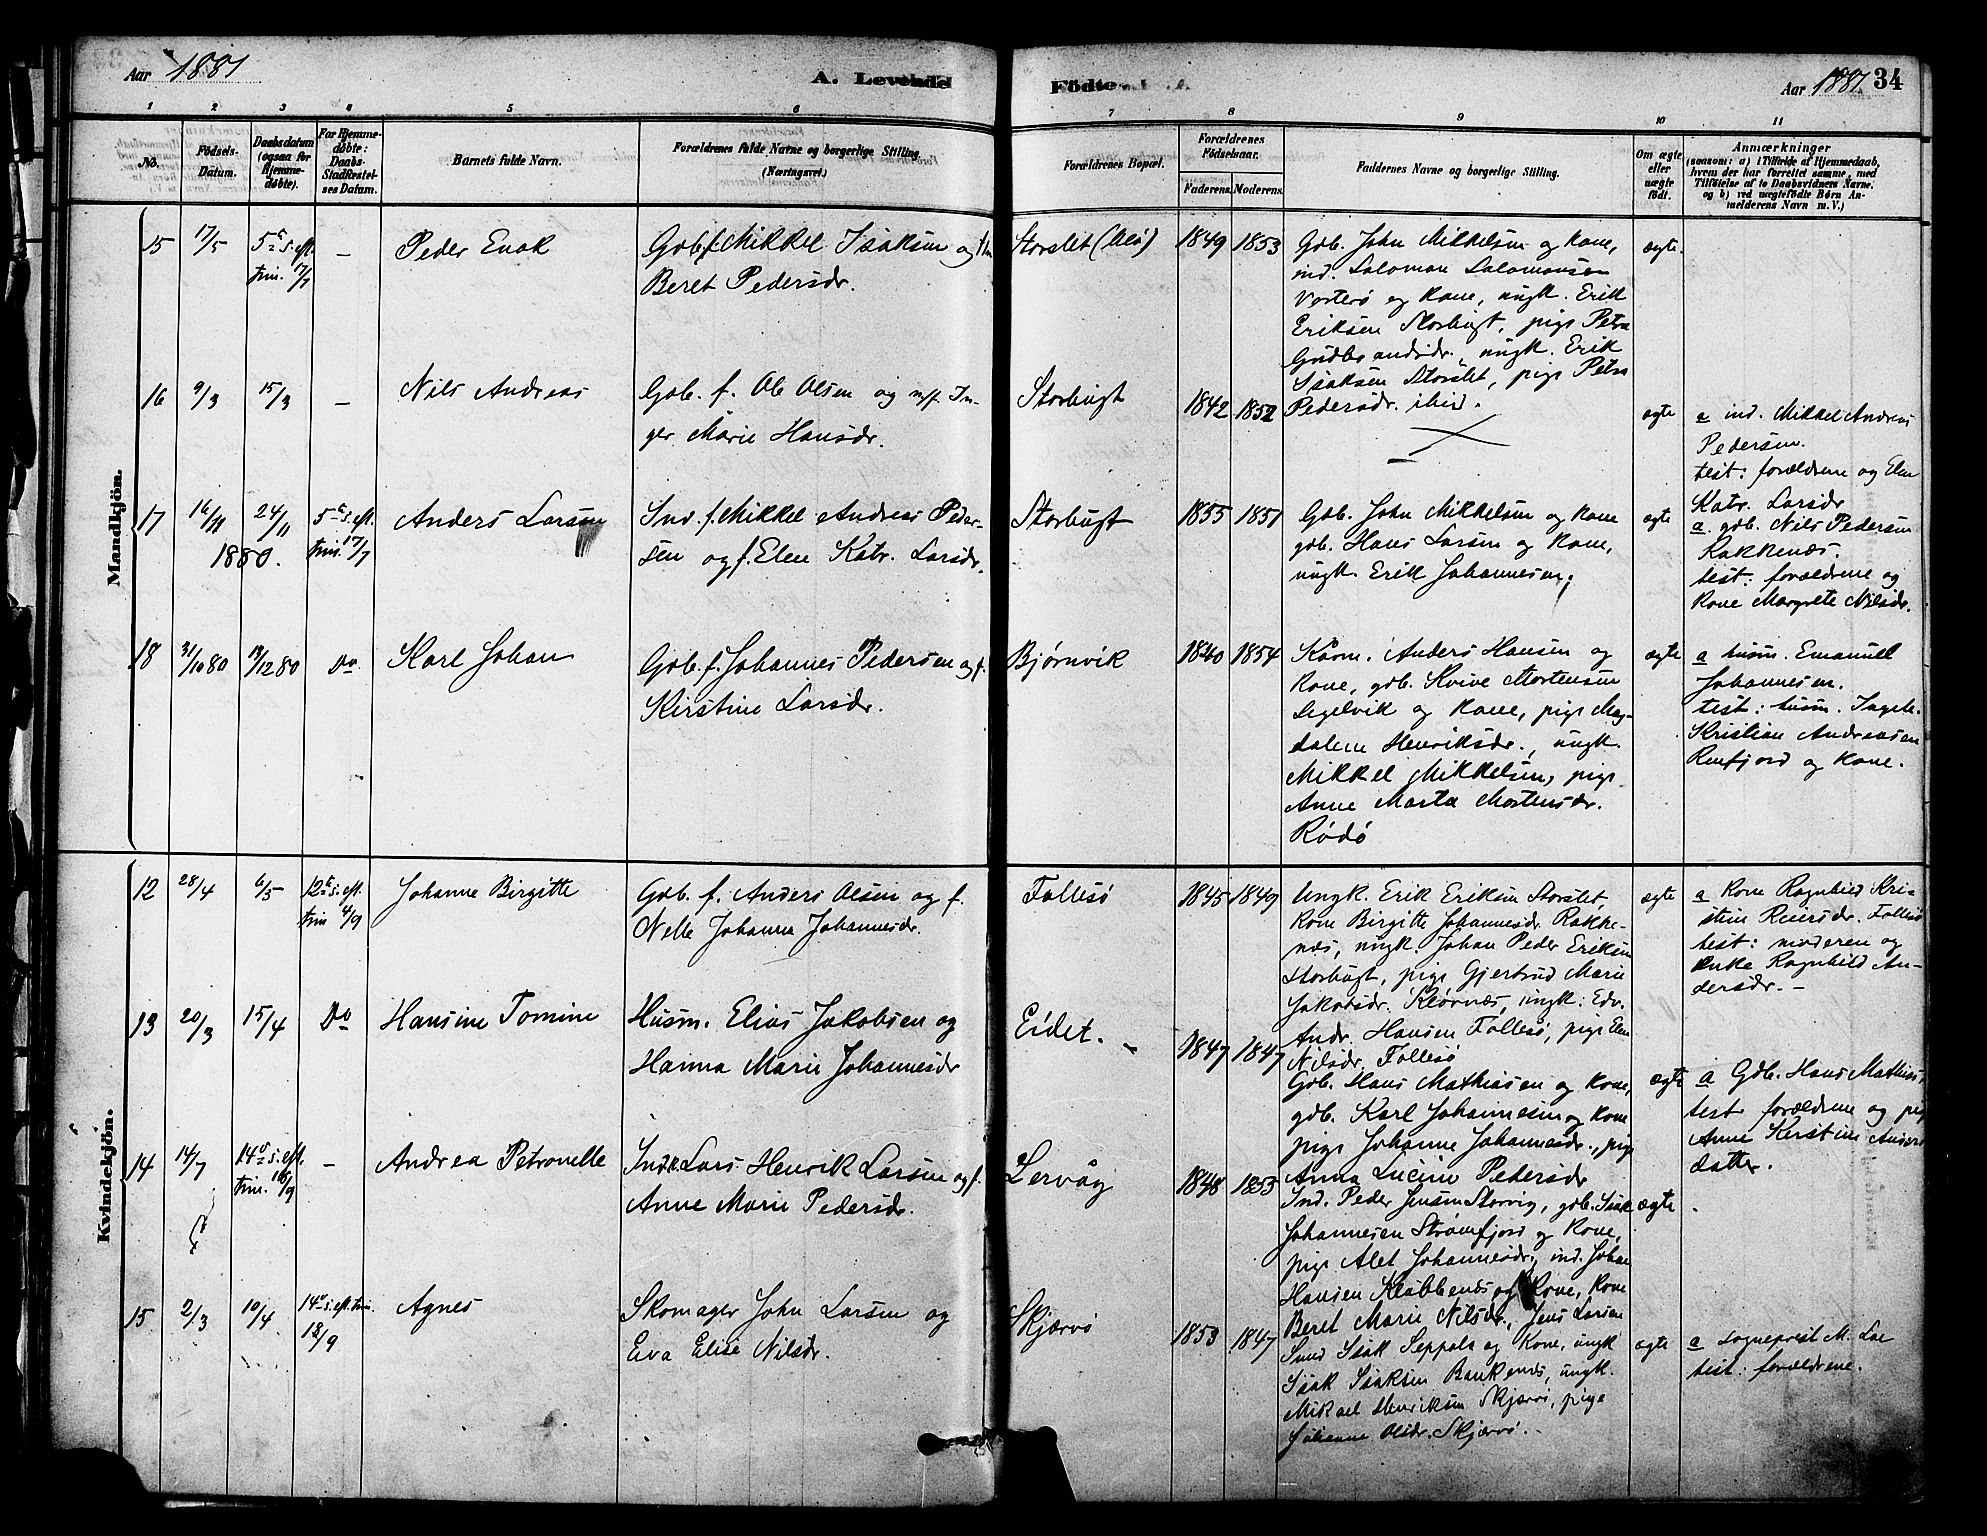 Aar 1881
A. Levende
Födte
Aar 1881
34
1
2
3
4
5
6
7
8
9
10
11
No.
Födsels-
Datum.
Daabsdatum
(ogsaa for
Hjemme-
døbte).
For Hjemme-
døbte:
Daabs-
Stadfæstel-
ses Datum.
Barnets fulde Navn.
Forældrenes fulde Navne og borgerlige Stilling
(Næringsvei.)
Forældrenes Bopæl.
Forældrenes
Födselsaar.
Faderens.
Moderens.
Faddernes Navne og borgerlige Stilling.
Om ægte
eller
uægte
født.
Anmærkninger
(saasom: a) i Tilfælde af Hjemmedaab,
hvem der har forrettet samme, med
Tilföielse af to Daabsvidners Navne.
og b) ved uægtefödte Børn An-
melderens Navn m. V.)
Mandkjön.
15
17/5
5te s. eft.
trin. 17/7
–
Peder Enok
Gdb. f. Mikkel Isaksen og
Beret Pedersdr.
Storslet
1849
1853
Gdb. John Mikkelsen og Kone,
ind. Salomon Salomonsen
Vorterø og Kone, ungk. Erik
Eriksen Storbugt, pige Petra
Gudbrandsdr., ungk. Erik
Isaksen Storslet, pige Petra
Pedersdr. ibid.
ægte.
16
9/3
15/3
–
Nils Andreas
Gdb. f. Ole Olsen og In-
ger Marie Hansdr.
Storbugt
1842
1852
ægte
a ind. Mikkel Andreas
Pedersen.
test: forældrene og Elen
Katr. Larsdr
17
16/11
1880.
24/11
5te s. eft.
trin. 17/7
Anders Larsen
Ind. f. Mikkel Andreas Peder-
sen og f. Elen Katr. Larsdr.
Storbugt
1855
1851
Gdb. John Mikkelsen og Kone
gdb. Hans Larsen og Kone,
ungk. Erik Johannesen.
ægte
a. gdb. Nils Pedersen
Rakkenæs.
test: forældrene og
Kone Margrete Nilsdr.
18
31/10 80
19/12 80
Do.
Karl Johan
Gdb. f. Johannes Pedersen og f.
Kirstine Larsdr.
Bjørnvik
1840
1854
Kårm. Anders Hansen og
Kone, gdb. Kvive Mortensen
Segelvik og Kone, pige Mag-
dalene Henriksdr., ungk.
Mikkel Mikkelsen, pige
Anne Marta Mortensdr.
Rødø
ægte
a husm. Emanuel
Johannesen.
test: husm.
Kristian Andreasen
Reinfjord og Kone.
Kvindekjön.
12
28/4
6/5
12te s. eft.
trin 4/9
Johanne Birgitte
Gdb. f. Anders Olsen og f.
Nelle Johanna Johannesdr.
Follesö
1845
1849
Ungk. Erik Eriksen Storslet,
Kone Birgitte Johannesdr. Rakke-
næs, ungk. Johan Peder Eriksen
Storbugt, pige Gjertrud Marie
Jakobsdr. Klövnæs, ungk: Edv.
Andr. Hansen Follesö, pige Elen
Nilsdr. Follesö
ægte
a Kone Ragnhild Kri-
stine Reiersdr. Follesö
test: moderen og
Enke Ragnhild An-
dersdr. –
13
20/3
15/4
Do
Hansine Tomine
Husm. Elias Jakobsen og
Hanna Marie Johannesdr
Eidet. –
1847
1847
Gdb. Hans Mathiasen og Kone,
gdb. Karl Johannesen og Kone
pige Johanne Johannesdr., pige
Anna Lucine Pedersdr
ægte
a Gdb. Hans Mathias.
test forældrene og pige
Anne Kirstine Anders
datter.
14
14/7
14de s. eft.
trin. 18/9
–
Andrea Petronelle
Lars Henrik Larsen og f.
Anne Marie Pedersdr.
Lervåg
1848
1853
Ind. Peder Jensen Storvig, gdb. Isak
Johannesen Strömfjord og Kone,
pige Alet Johannesdr., ind. Johan
Hansen Klöbbenæs og Kone, Kone
Beret Marie Nilsdr, Jens Larsen
Sund
ægte
15
2/3
10/4
14de s. eft. trin.
18/9
Agnes
Skomager John Larsen og
Eva Elise Nilsdr.
Skjærvö
1853
1847
Isak Seppala og Kone, ungk
Isak Isaksen Baukenæs, ungk.
Mikael Henriksen Skjærvö, pige
Johanne Olsdr. Skjærvö. –
ægte
a sogneprest M.
test: forældrene.